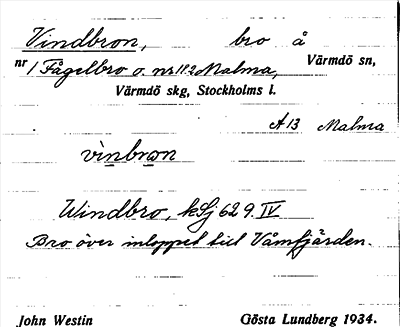 Vindbron, bro å
nr 1 Fågelbro o. nr 1 1.2 Malma, Värmdö sn,
Värmdö skg, Stockholms l.
A 13 Malma
vinbron
Windbro, kSj 62 9. IV
Bro över inloppet till Våmfjärden.
John Westin Gösta Lundberg 1934.